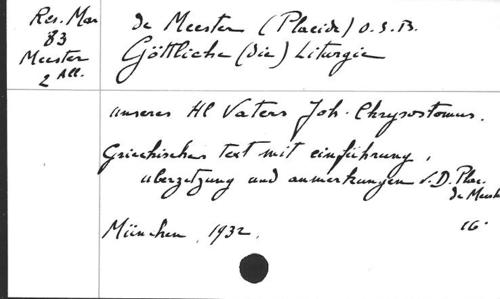 Res. Mar
83
Meester
2 All.
De Meester (Placide) O.S.B.
Göttliche (die) Liturgie
unseres Hl Vaters Joh. Chrysostomus.
Griechischer text mit einführung,
überzetzung und anmerkungen v. D. Plac.
de Meester
München, 1932.
16°